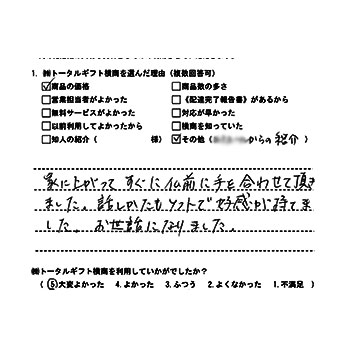 1. ㈱トータルギフト横商を選んだ理由（複数回答可）
☑商品の価格 □商品数の多さ
□営業担当者がよかった □《配達完了報告書》があるから
□無料サービスがよかった □対応が早かった
□以前利用してよかったから □横商を知っていた
□知人の紹介（ 様） ☑その他（ からの紹介）
家に上がって すぐに仏前に手を合わせて頂き
ました。話しかたもソフトで好感が持てま
した。お世話になりました。
㈱トータルギフト横商を利用していかがでしたか？
（ ⑤大変よかった 4.よかった 3.ふつう 2.よくなかった 1.不満足 ）